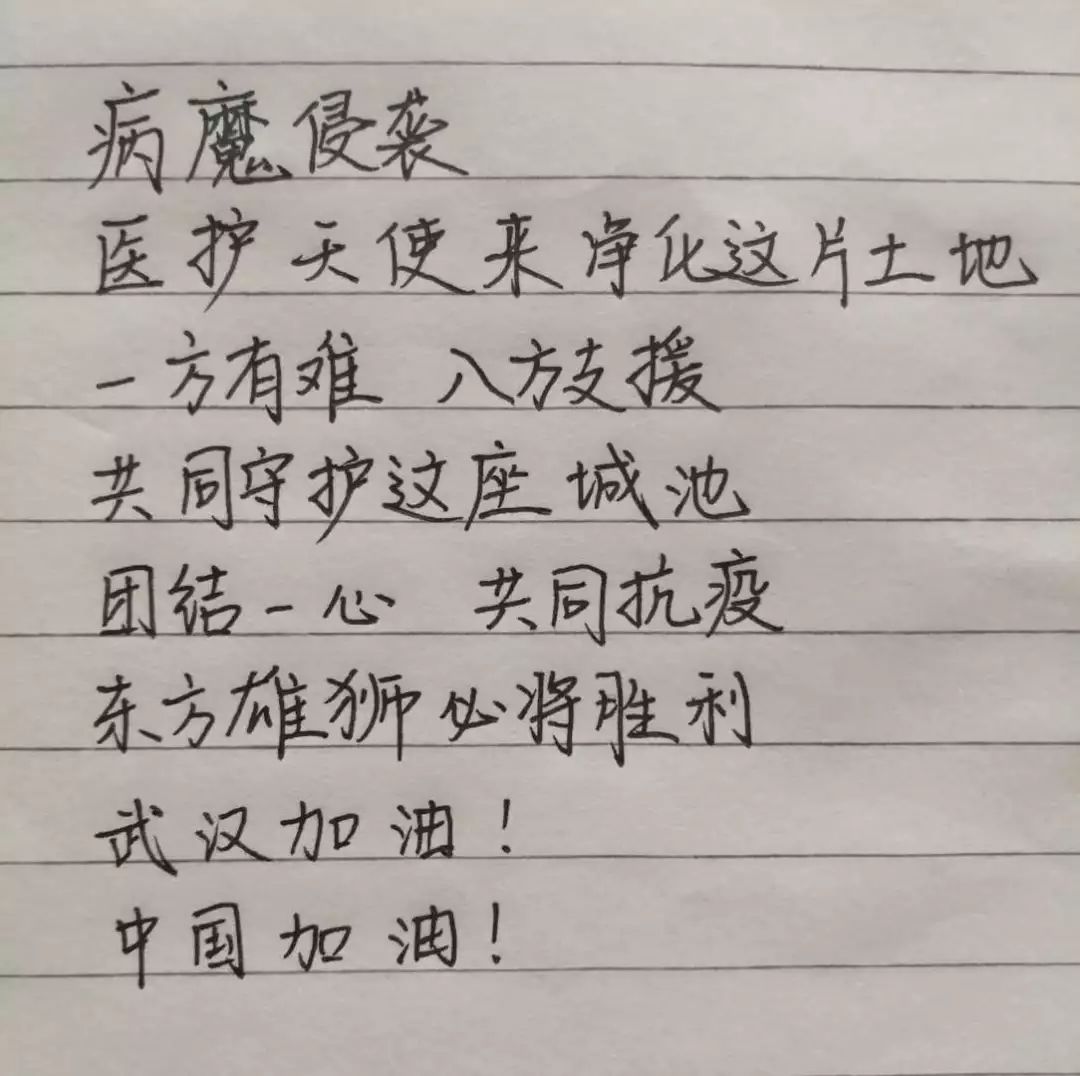 病魔侵袭
医护天使来净化这片土地
一方有难 八方支援
共同守护这座城池
团结一心 共同抗疫
东方雄狮必将胜利
武汉加油！
中国加油！